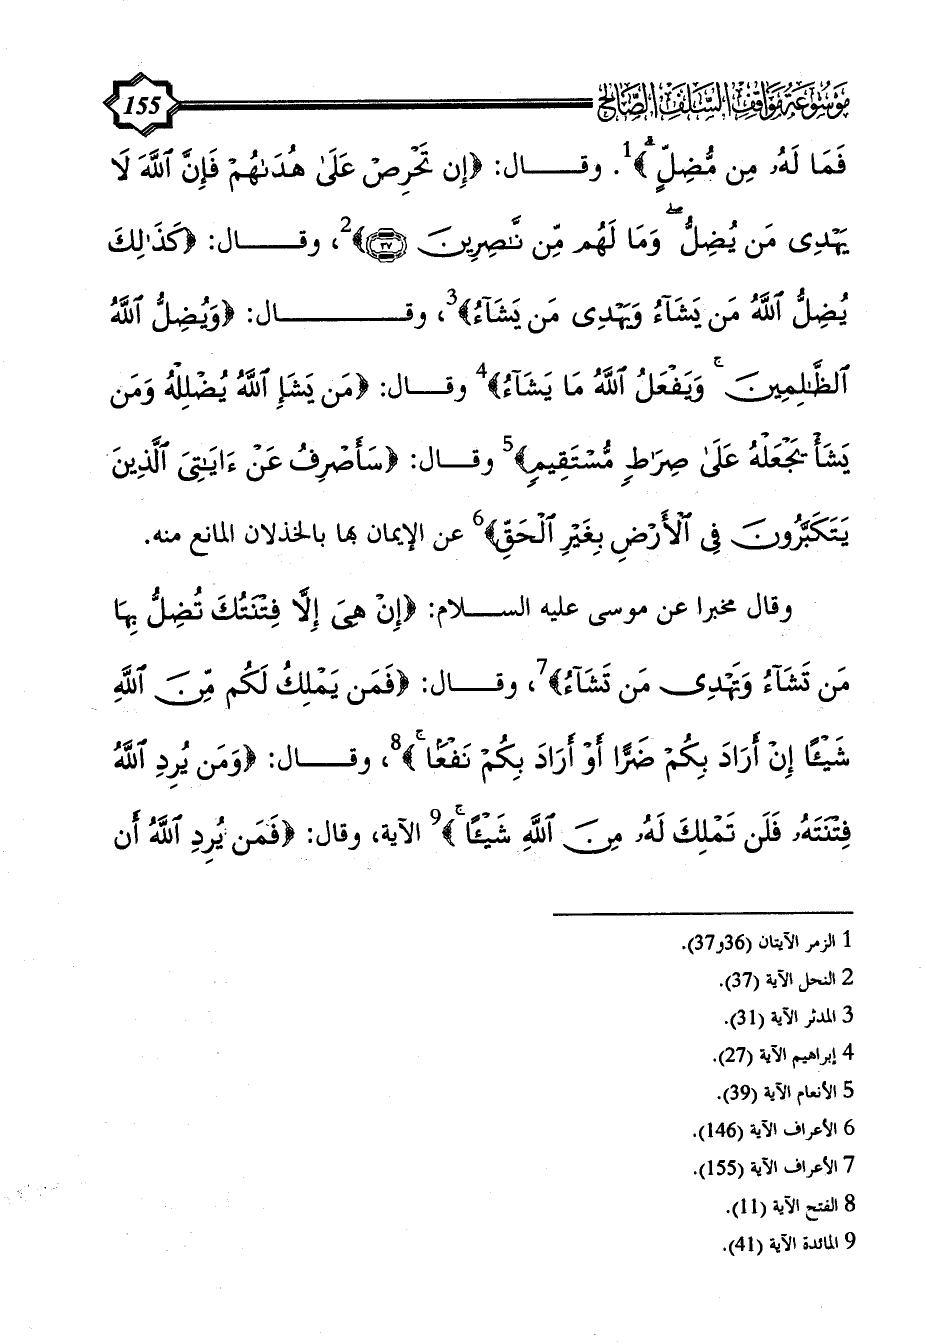 موسوعة مواقف السلف الصالح
155
فَمَا لَهُۥ مِن مُّضِلٍّ ۗ﴾1. وقـــال: ﴿إِن تَحْرِصْ عَلَىٰ هُدَىٰهُمْ فَإِنَّ ٱللَّهَ لَا
يَهْدِى مَن يُضِلُّ ۖ وَمَا لَهُم مِّن نَّـٰصِرِينَ ۝٣٧﴾2، وقـــال: ﴿كَذَٰلِكَ
يُضِلُّ ٱللَّهُ مَن يَشَآءُ وَيَهْدِى مَن يَشَآءُ﴾3، وقـــــال: ﴿وَيُضِلُّ ٱللَّهُ
ٱلظَّـٰلِمِينَ ۚ وَيَفْعَلُ ٱللَّهُ مَا يَشَآءُ﴾4 وقـــال: ﴿مَن يَشَإِ ٱللَّهُ يُضْلِلْهُ وَمَن
يَشَأْ يَجْعَلْهُ عَلَىٰ صِرَٰطٍ مُّسْتَقِيمٍ﴾5 وقـــال: ﴿سَأَصْرِفُ عَنْ ءَايَـٰتِىَ ٱلَّذِينَ
يَتَكَبَّرُونَ فِى ٱلْأَرْضِ بِغَيْرِ ٱلْحَقِّ﴾6 عن الإيمان بها بالخذلان المانع منه.
وقال مخبرا عن موسى عليه الســـلام: ﴿إِنْ هِىَ إِلَّا فِتْنَتُكَ تُضِلُّ بِهَا
مَن تَشَآءُ وَتَهْدِى مَن تَشَآءُ﴾7، وقـــال: ﴿فَمَن يَمْلِكُ لَكُم مِّنَ ٱللَّهِ
شَيْـًٔا إِنْ أَرَادَ بِكُمْ ضَرًّا أَوْ أَرَادَ بِكُمْ نَفْعًۢا ۚ﴾8، وقـــال: ﴿وَمَن يُرِدِ ٱللَّهُ
فِتْنَتَهُۥ فَلَن تَمْلِكَ لَهُۥ مِنَ ٱللَّهِ شَيْـًٔا ۚ﴾9 الآية، وقال: ﴿فَمَن يُرِدِ ٱللَّهُ أَن
1 الزمر الآيتان (36و37).
2 النحل الآية (37).
3 المدثر الآية (31).
4 إبراهيم الآية (27).
5 الأنعام الآية (39).
6 الأعراف الآية (146).
7 الأعراف الآية (155).
8 الفتح الآية (11).
9 المائدة الآية (41).